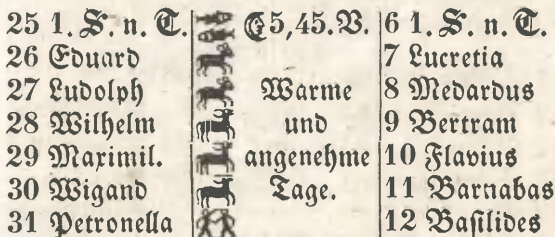 25 1. S. n. T. € 5,45.V. 6 1. S. n. T.
26 Eduard 7 Lucretia
27 Ludolph Warme 8 Medardus
28 Wilhelm und 9 Bertram
29 Maximil. angenehme 10 Flavius
30 Wigand Tage. 11 Barnabas
31 Petronella 12 Basilides